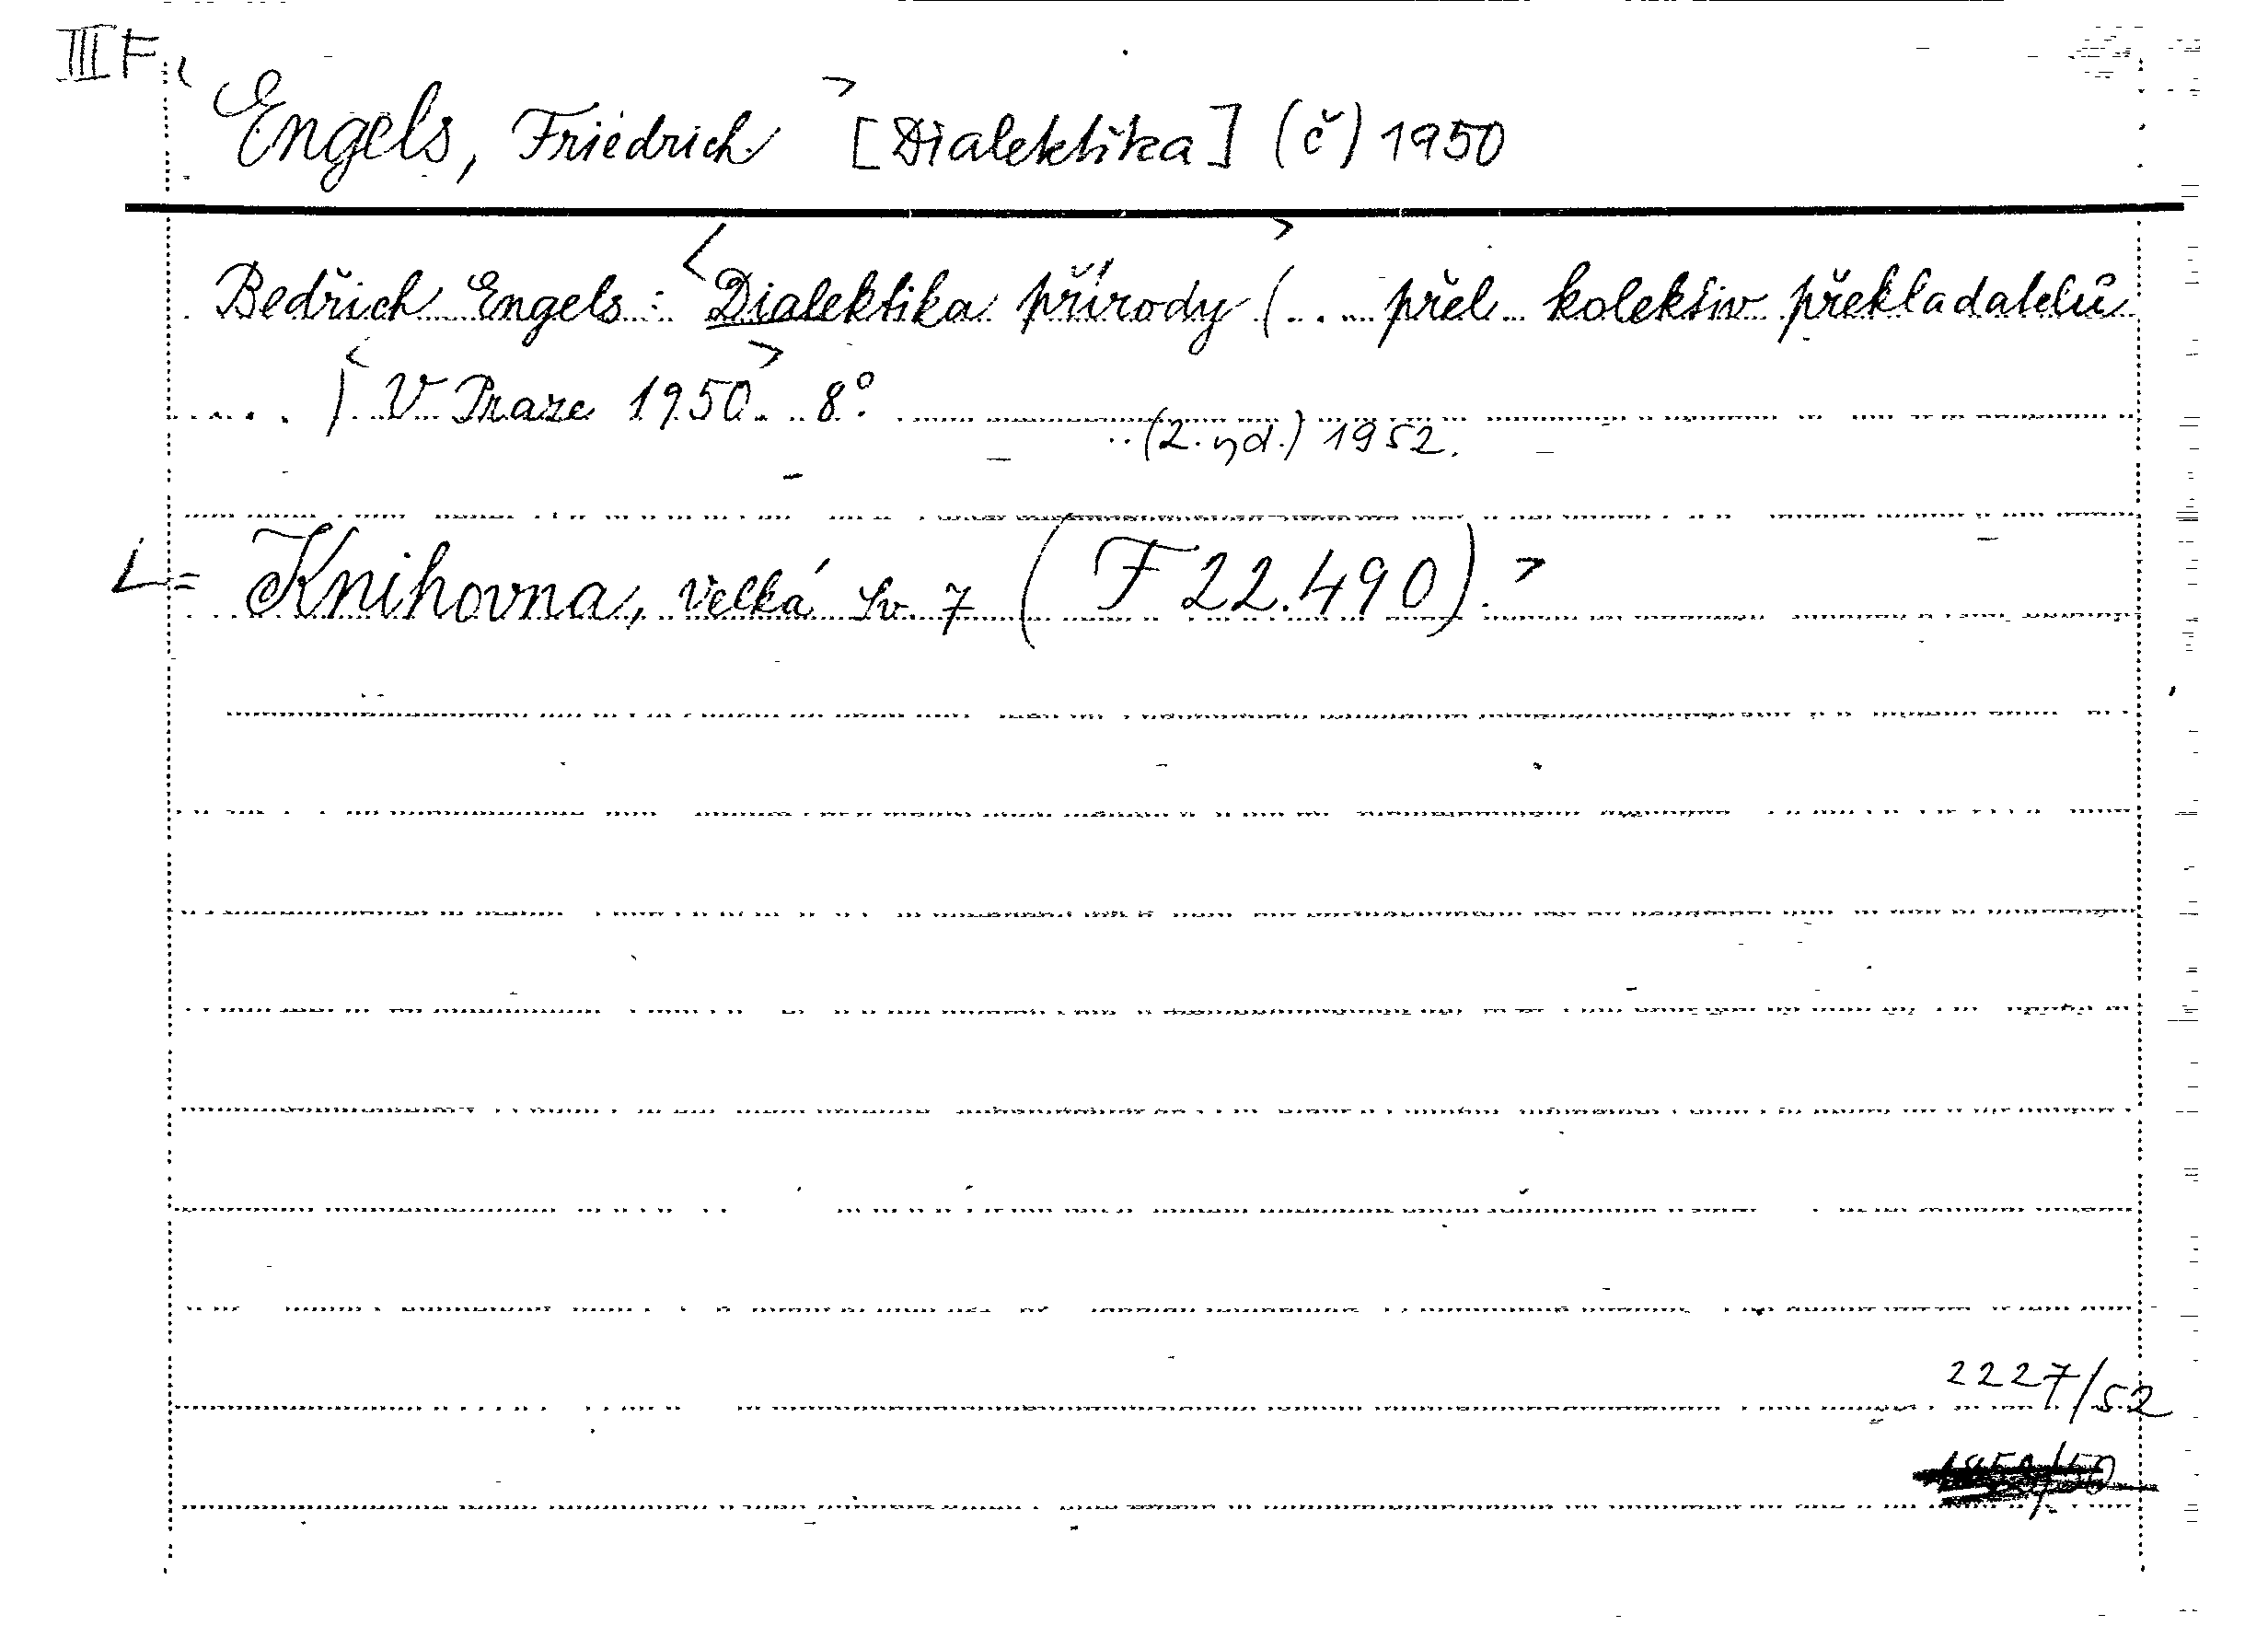 III F
Engels, Friedrich [Dialektika] (č) 1950
Bedřich Engels: <Dialektika přírody> (... přel. kolektiv překladatelů
.....) <V Praze 1950> 8°.
..(2. yd.) 1952.
<= Knihovna, Velká Sv. 7 (F 22.490).>
2227/52